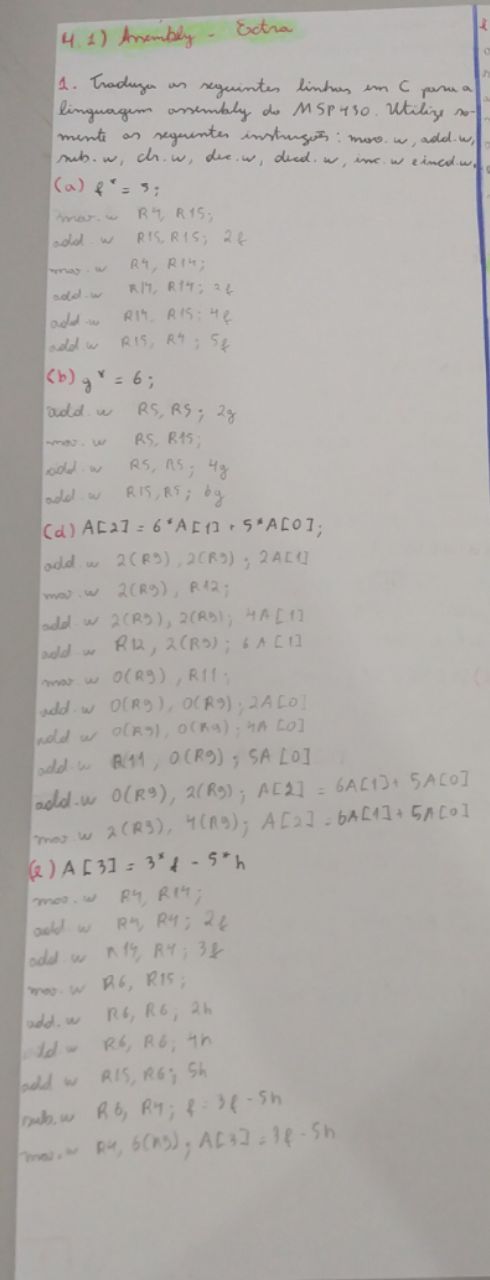 4.1) Assembly - Extra
1. Traduza as seguintes linhas em C para a
linguagem assembly do MSP430. Utilize so-
mente as seguintes instruções: mov.w, add.w,
sub.w, clr.w, dec.w, decd.w, inc.w e incd.w.
(a) f* = 5;
mov.w R4, R15;
add.w R15, R15; 2f
mov.w R4, R14;
add.w R14, R14; 2f
add.w R14, R15; 4f
add.w R15, R4; 5f
(b) g* = 6;
add.w R5, R5; 2g
mov.w R5, R15;
add.w R5, R5; 4g
add.w R15, R5; 6g
(d) A[2] = 6*A[1] + 5*A[0];
add.w 2(R9), 2(R9); 2A[1]
mov.w 2(R9), R12;
add.w 2(R9), 2(R9); 4A[1]
add.w R12, 2(R9); 6A[1]
mov.w 0(R9), R11;
add.w 0(R9), 0(R9); 2A[0]
add.w 0(R9), 0(R9); 4A[0]
add.w R11, 0(R9); 5A[0]
add.w 0(R9), 2(R9); A[2] = 6A[1] + 5A[0]
mov.w 2(R9), 4(R9); A[2] = 6A[1] + 5A[0]
(e) A[3] = 3*f - 5*h
mov.w R4, R14;
add.w R4, R4; 2f
add.w R14, R4; 3f
mov.w R6, R15;
add.w R6, R6, 2h
add.w R6, R6; 4h
add.w R15, R6; 5h
sub.w R6, R4; f = 3f - 5h
mov.w R4, 6(R9); A[3] = 3f - 5h